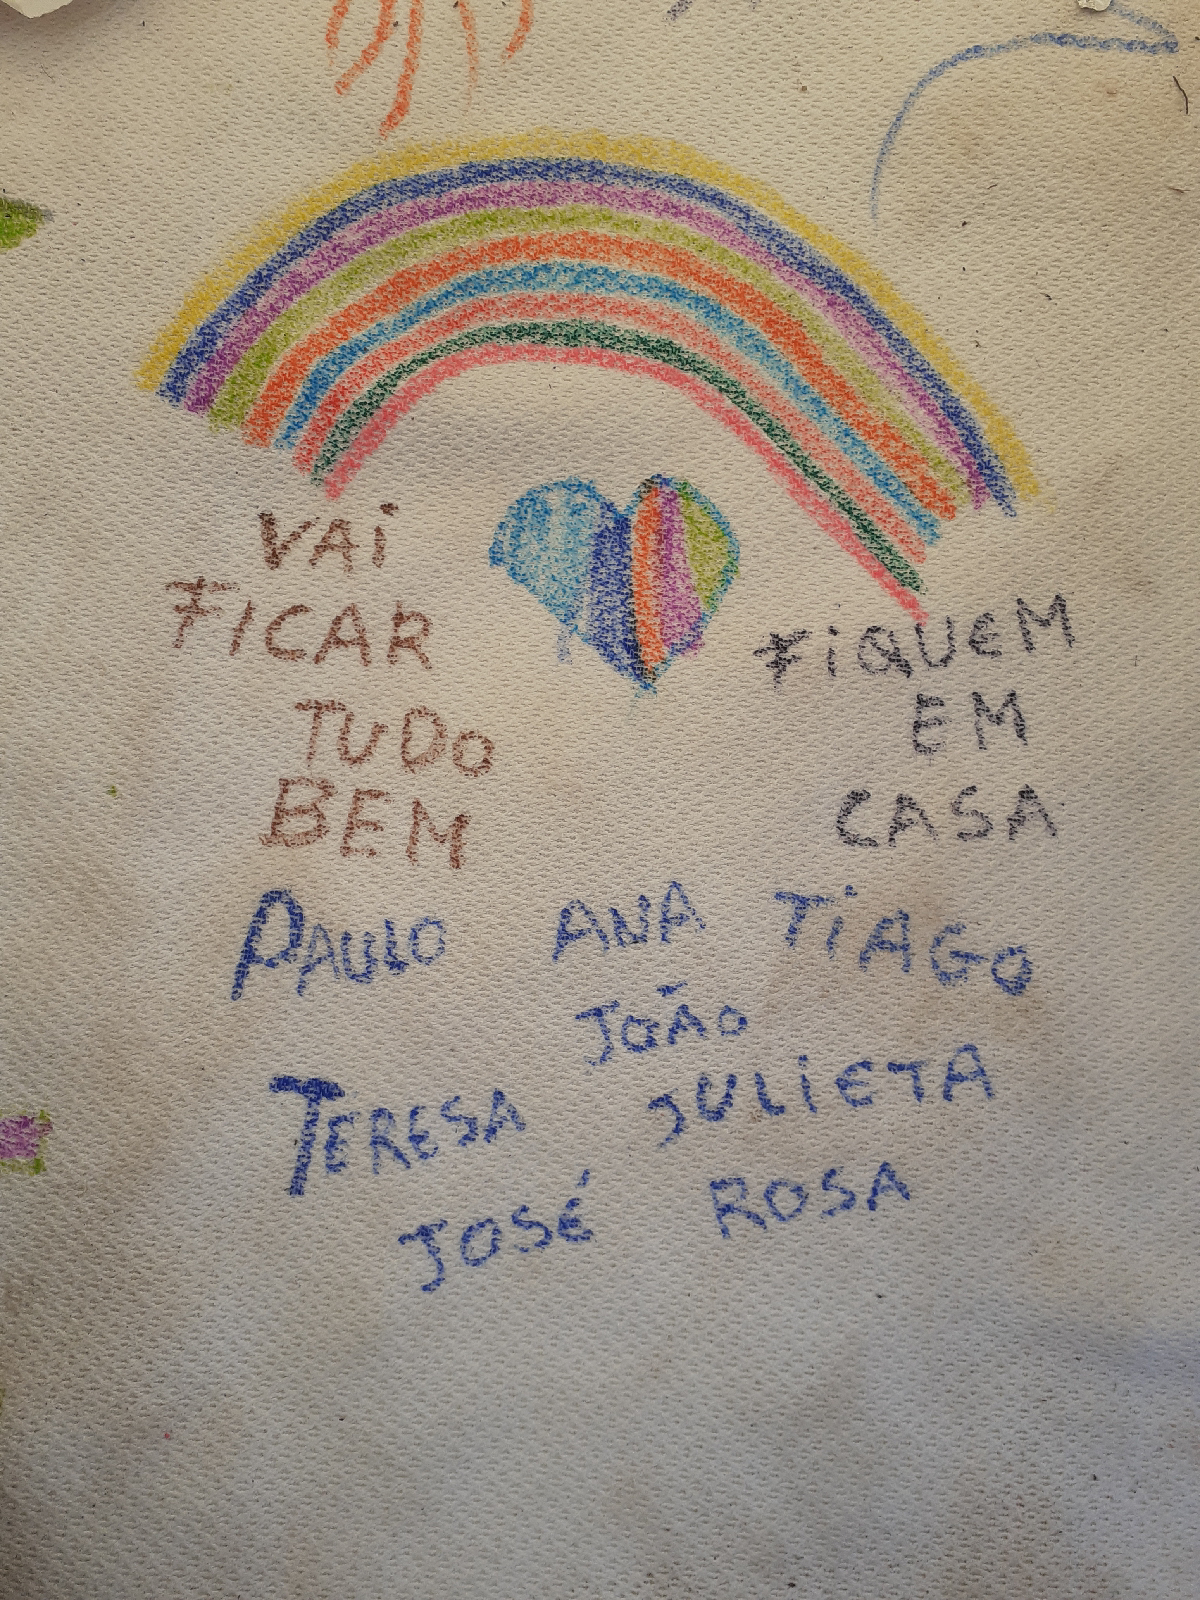 VAi
FICAR
TUDO
BEM
FiQUEM
EM
CASA
PAULO ANA TiAGO
JOÃO
TERESA JULiETA
JOSÉ ROSA